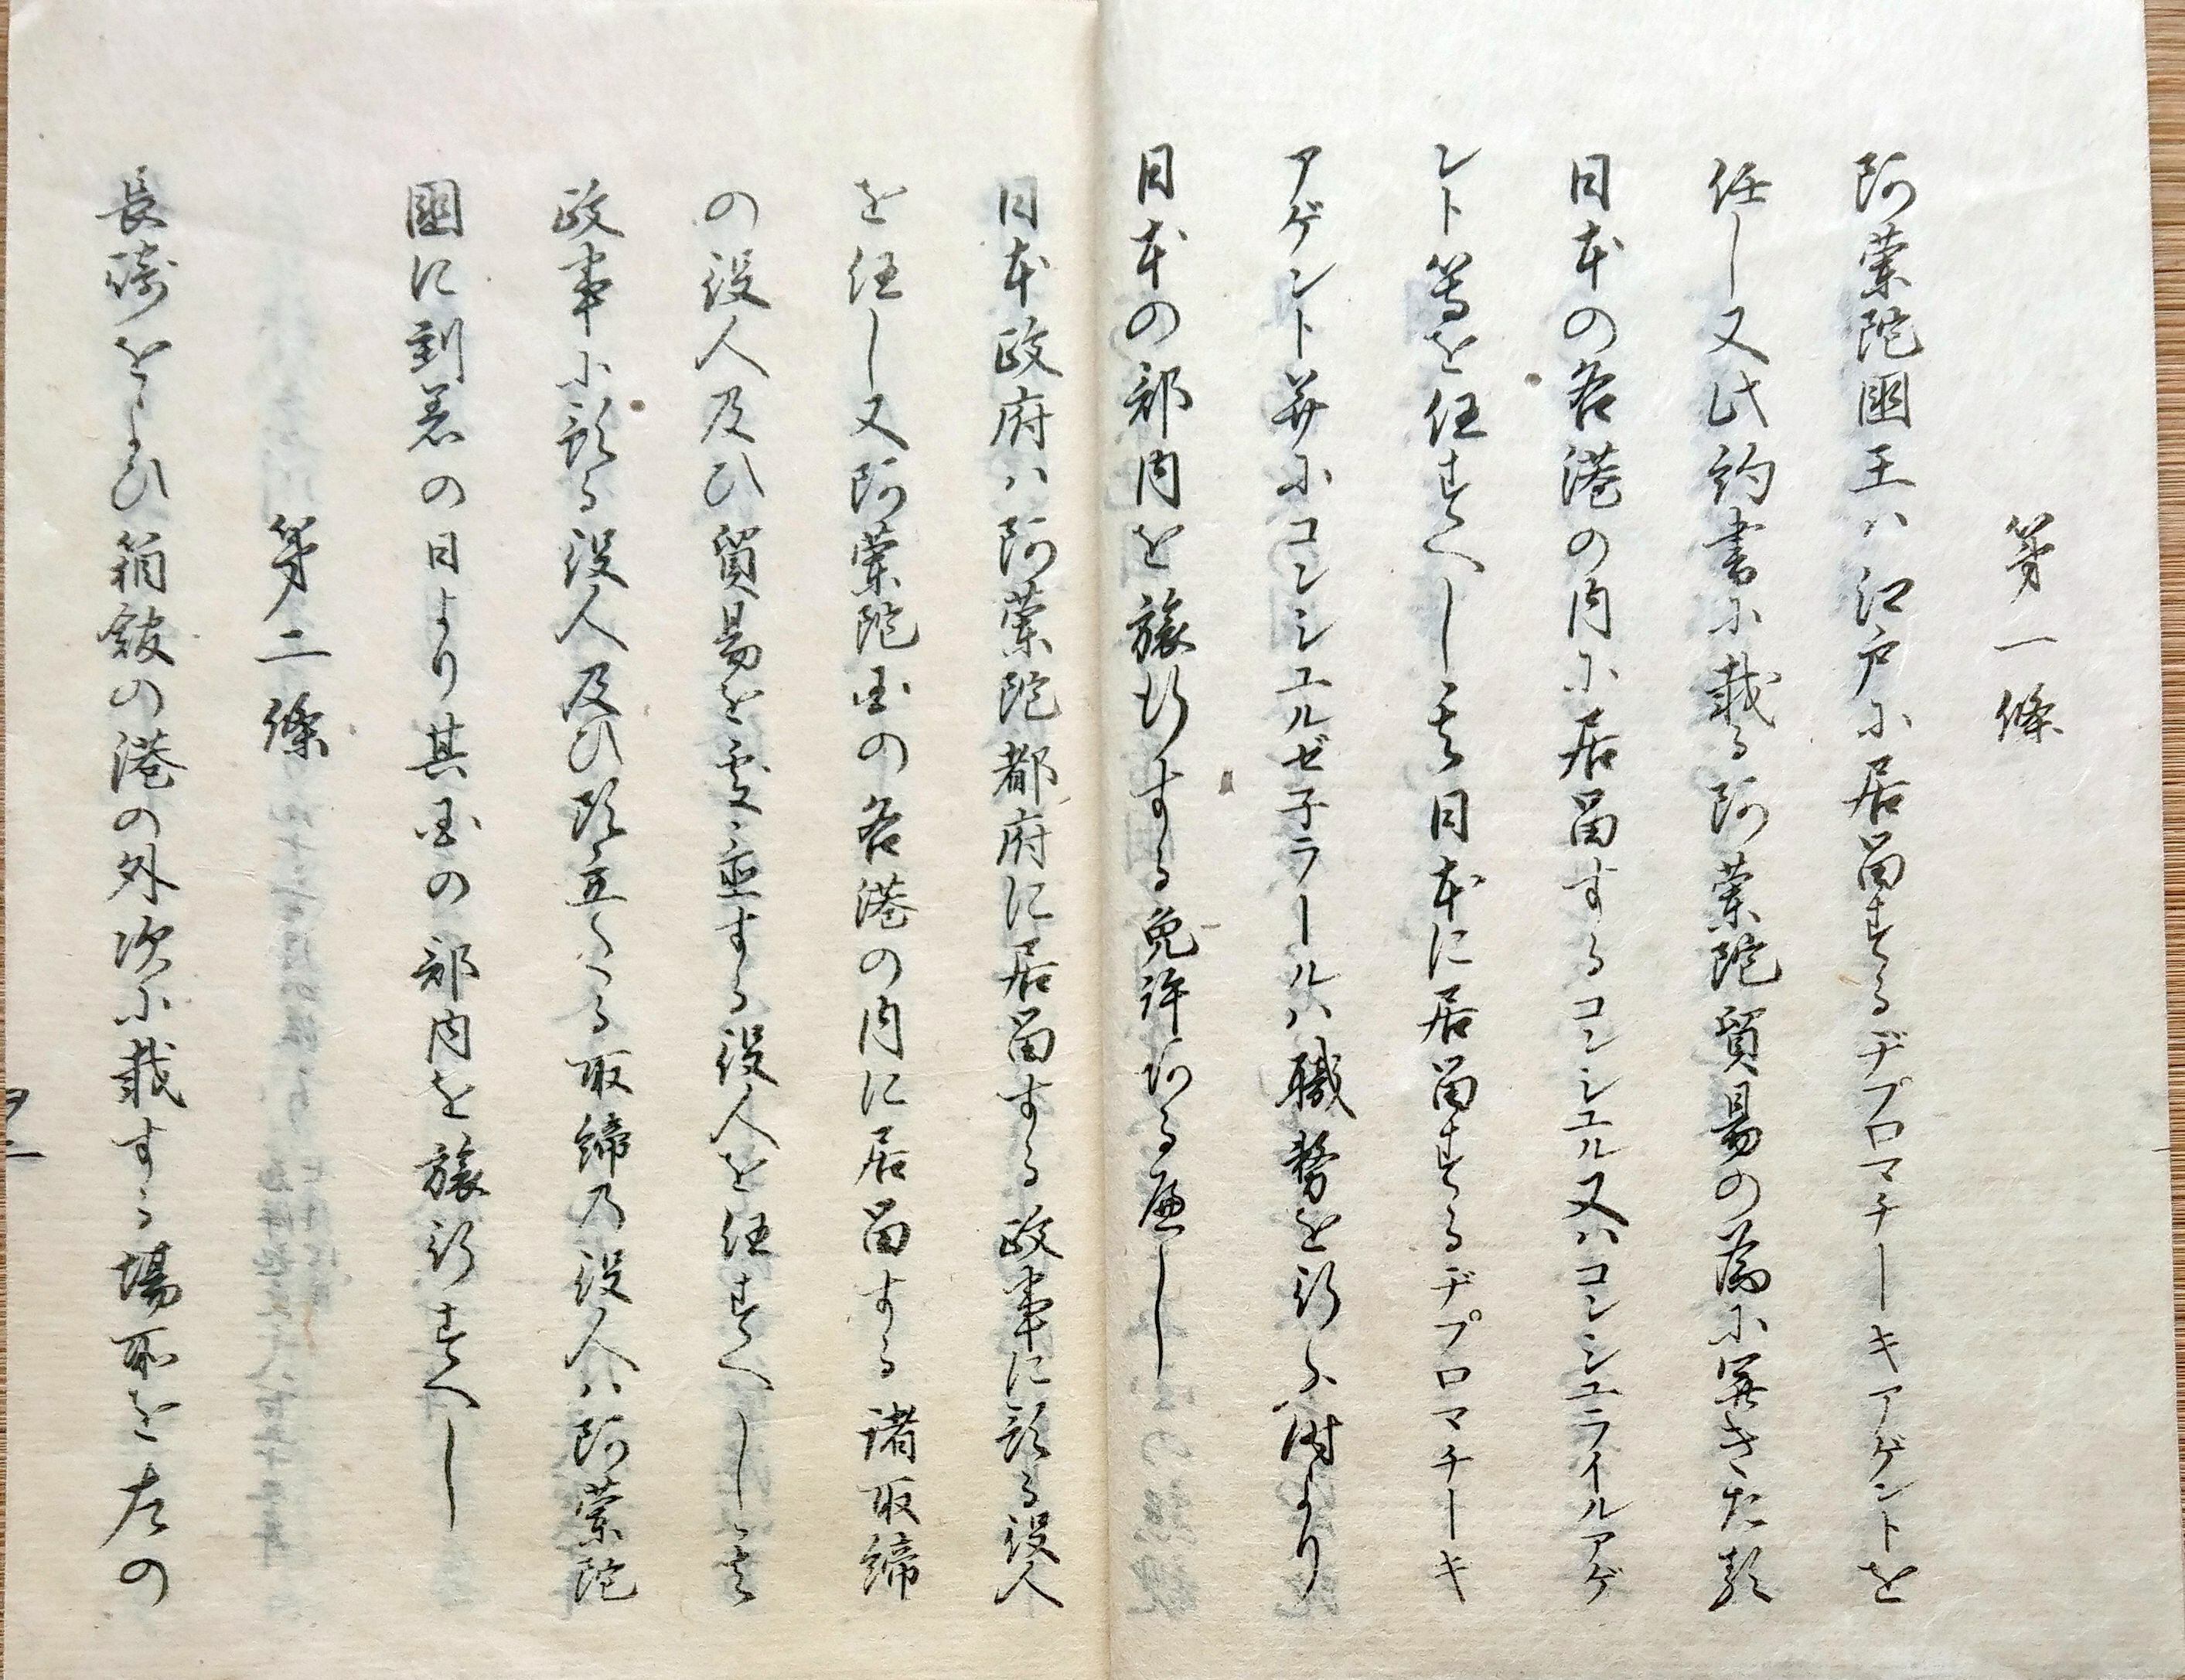 第一條
阿蘭陀国王ハ江戸に居留するヂプロマチーキアゲントを
任し又此約書に載る阿蘭陀貿易の為に開きたる
日本の各港の内に居留するコンシユル又ハコンシユライルアゲ
ント等を任すへし其日本に居留するヂプロマチーキ
アゲント并にコンシユルゼ子ラールハ職務を行ふ時より
日本の部内を旅行する免許ある へし
日本政府ハ阿蘭陀都府に居留する政事に預る役人
を任し又阿蘭陀国の各港の内に居留する諸取締
の役人及ひ貿易を処置する役人を任すへし其
政事に預る役人及ひ頭立たる取締乃役人ハ阿蘭陀
国に到着の日より其国の部内を旅行すへし
第二條
長崎をよひ箱館の港の外次に載する場所を左の